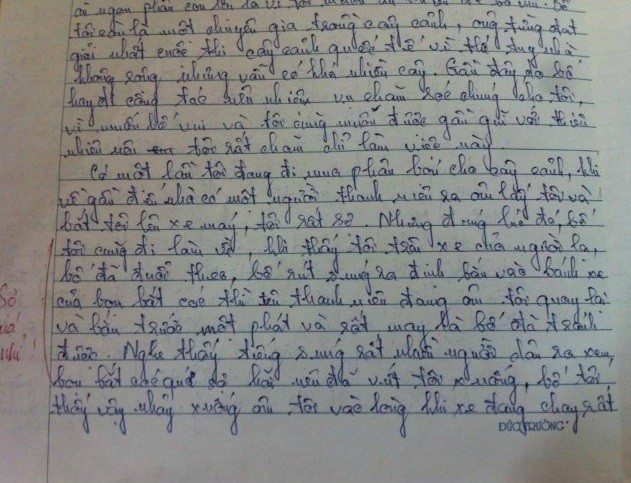 tôi còn là một chuyên gia trong cây cảnh, ông từng đạt
giải nhất cuộc thi cây cảnh quốc tế vì thế tuy nhà
không rộng nhưng vẫn có khá nhiều cây. Gần đây do bố
hay đi công tác nên nhiệm vụ chăm sóc chúng cho tôi,
vì muốn bố vui và tôi cũng muốn được gần gũi với thiên
nhiên nên tôi rất chăm chỉ làm việc này.
Có một lần tôi đang đi mua phân bón cho cây cảnh, khi
về gần đến nhà có một người thanh niên ra ôm lấy tôi và
bắt tôi lên xe máy, tôi rất sợ. Nhưng đúng lúc đó bố
tôi cũng đi làm về, khi thấy tôi trên xe của người lạ,
bố đã đuổi theo, bố rút súng ra định bắn vào bánh xe
của bọn bắt cóc thì tên thanh niên đang ôm tôi quay lại
và bắn trước một phát và rất may là bố đã tránh
được. Nghe thấy tiếng súng rất nhiều người dân ra xem,
bọn bắt cóc quá sợ hãi nên đã vứt tôi xuống, bố tôi
thấy vậy nhảy xuống ôm tôi vào lòng khi xe đang chạy rất
Sở
giá
nhỉ!
ĐỨC TRƯỜNG